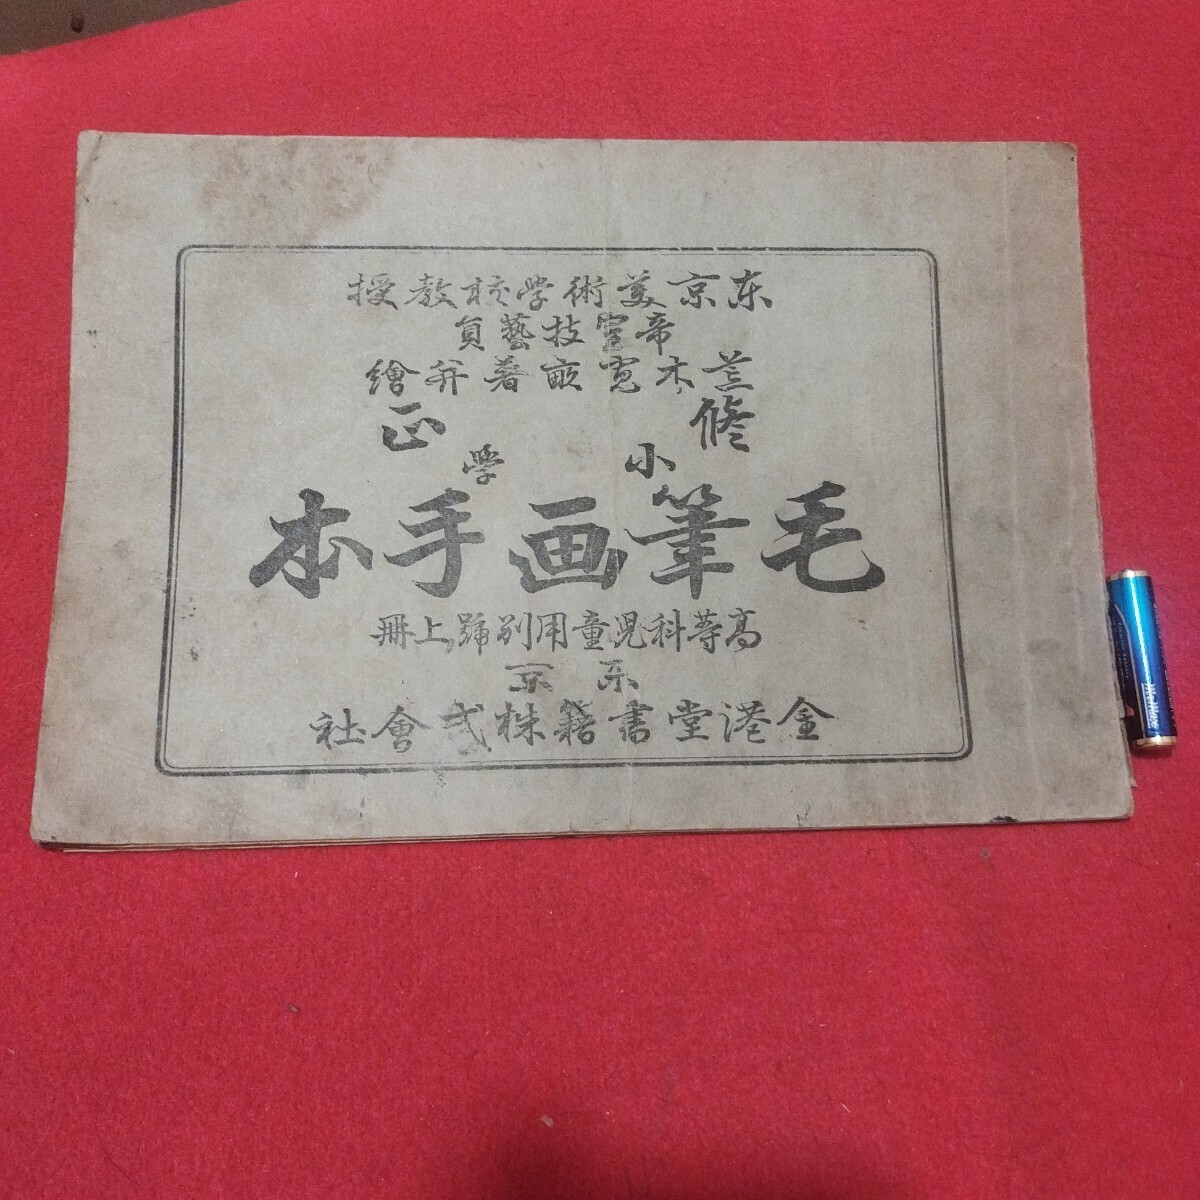 東京美術学校教授
帝室技藝員
荒木寛畝著并繪
修正
小学
毛筆画手本
高等科児童用別號上冊
東京
金港堂書籍株式會社